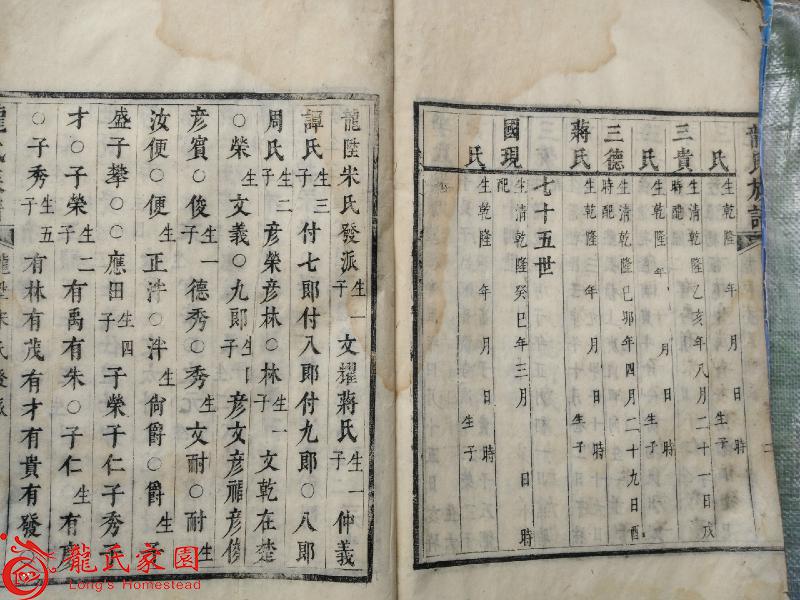 龍氏族譜
氏
生乾隆 年 月 日 時 生子
三貴
生清乾隆乙亥年八月二十一日戌時配
氏
生乾隆 年 月 日 時 生子
三德
生清乾隆己卯年四月二十九日酉時配
蔣氏
生乾隆 年 月 日 時 生子
七十五世
國現
生清乾隆癸巳年三月 日 時配
氏
生乾隆 年 月 日 時 生子
龍陞宋氏發派生一子文耀蔣氏生一子仲義
譚氏生三子付七郎付八郎付九郎○八郎
周氏生二子彥榮彥林○林生一子文乾在楚
○榮生子文義○九郎生四子彥文彥福彥俊
彥賓○俊生一子德秀○秀生子文耐○耐生子
汝便○便生子正泮○泮生子尚爵○爵生子
盛子攀○○應田生四子子榮子仁子秀子
才○子榮生二子有禹有朱○子仁生子有慶
○子秀生五子有林有茂有才有貴有發
龍陞宋氏發派
龍氏家園
Long's Homestead